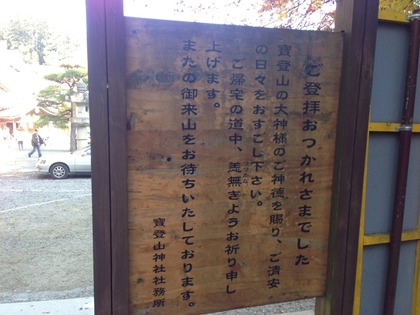 ご登拝おつかれさまでした
寶登山の大神様のご神徳を賜り、ご清安
の日々をおすごし下さい。
ご帰宅の道中、恙無きようお祈り申し
上げます。
またの御来山をお待ちいたしております。
寶登山神社社務所